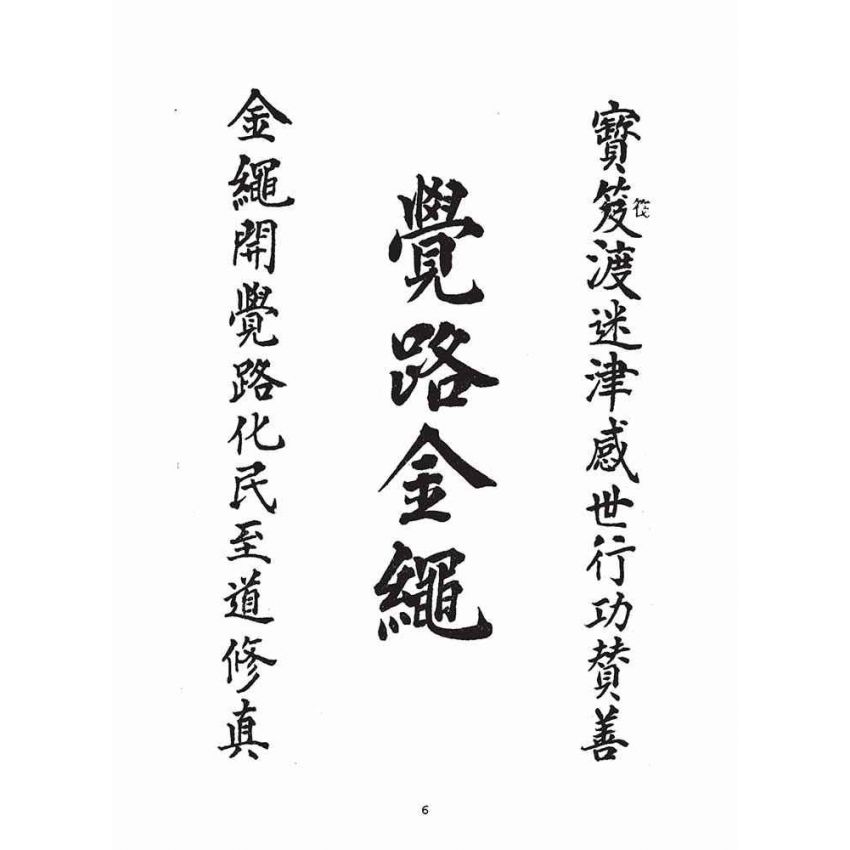 寶笈渡迷津感世行功贊善
筏
覺路金繩
金繩開覺路化民至道修真
6